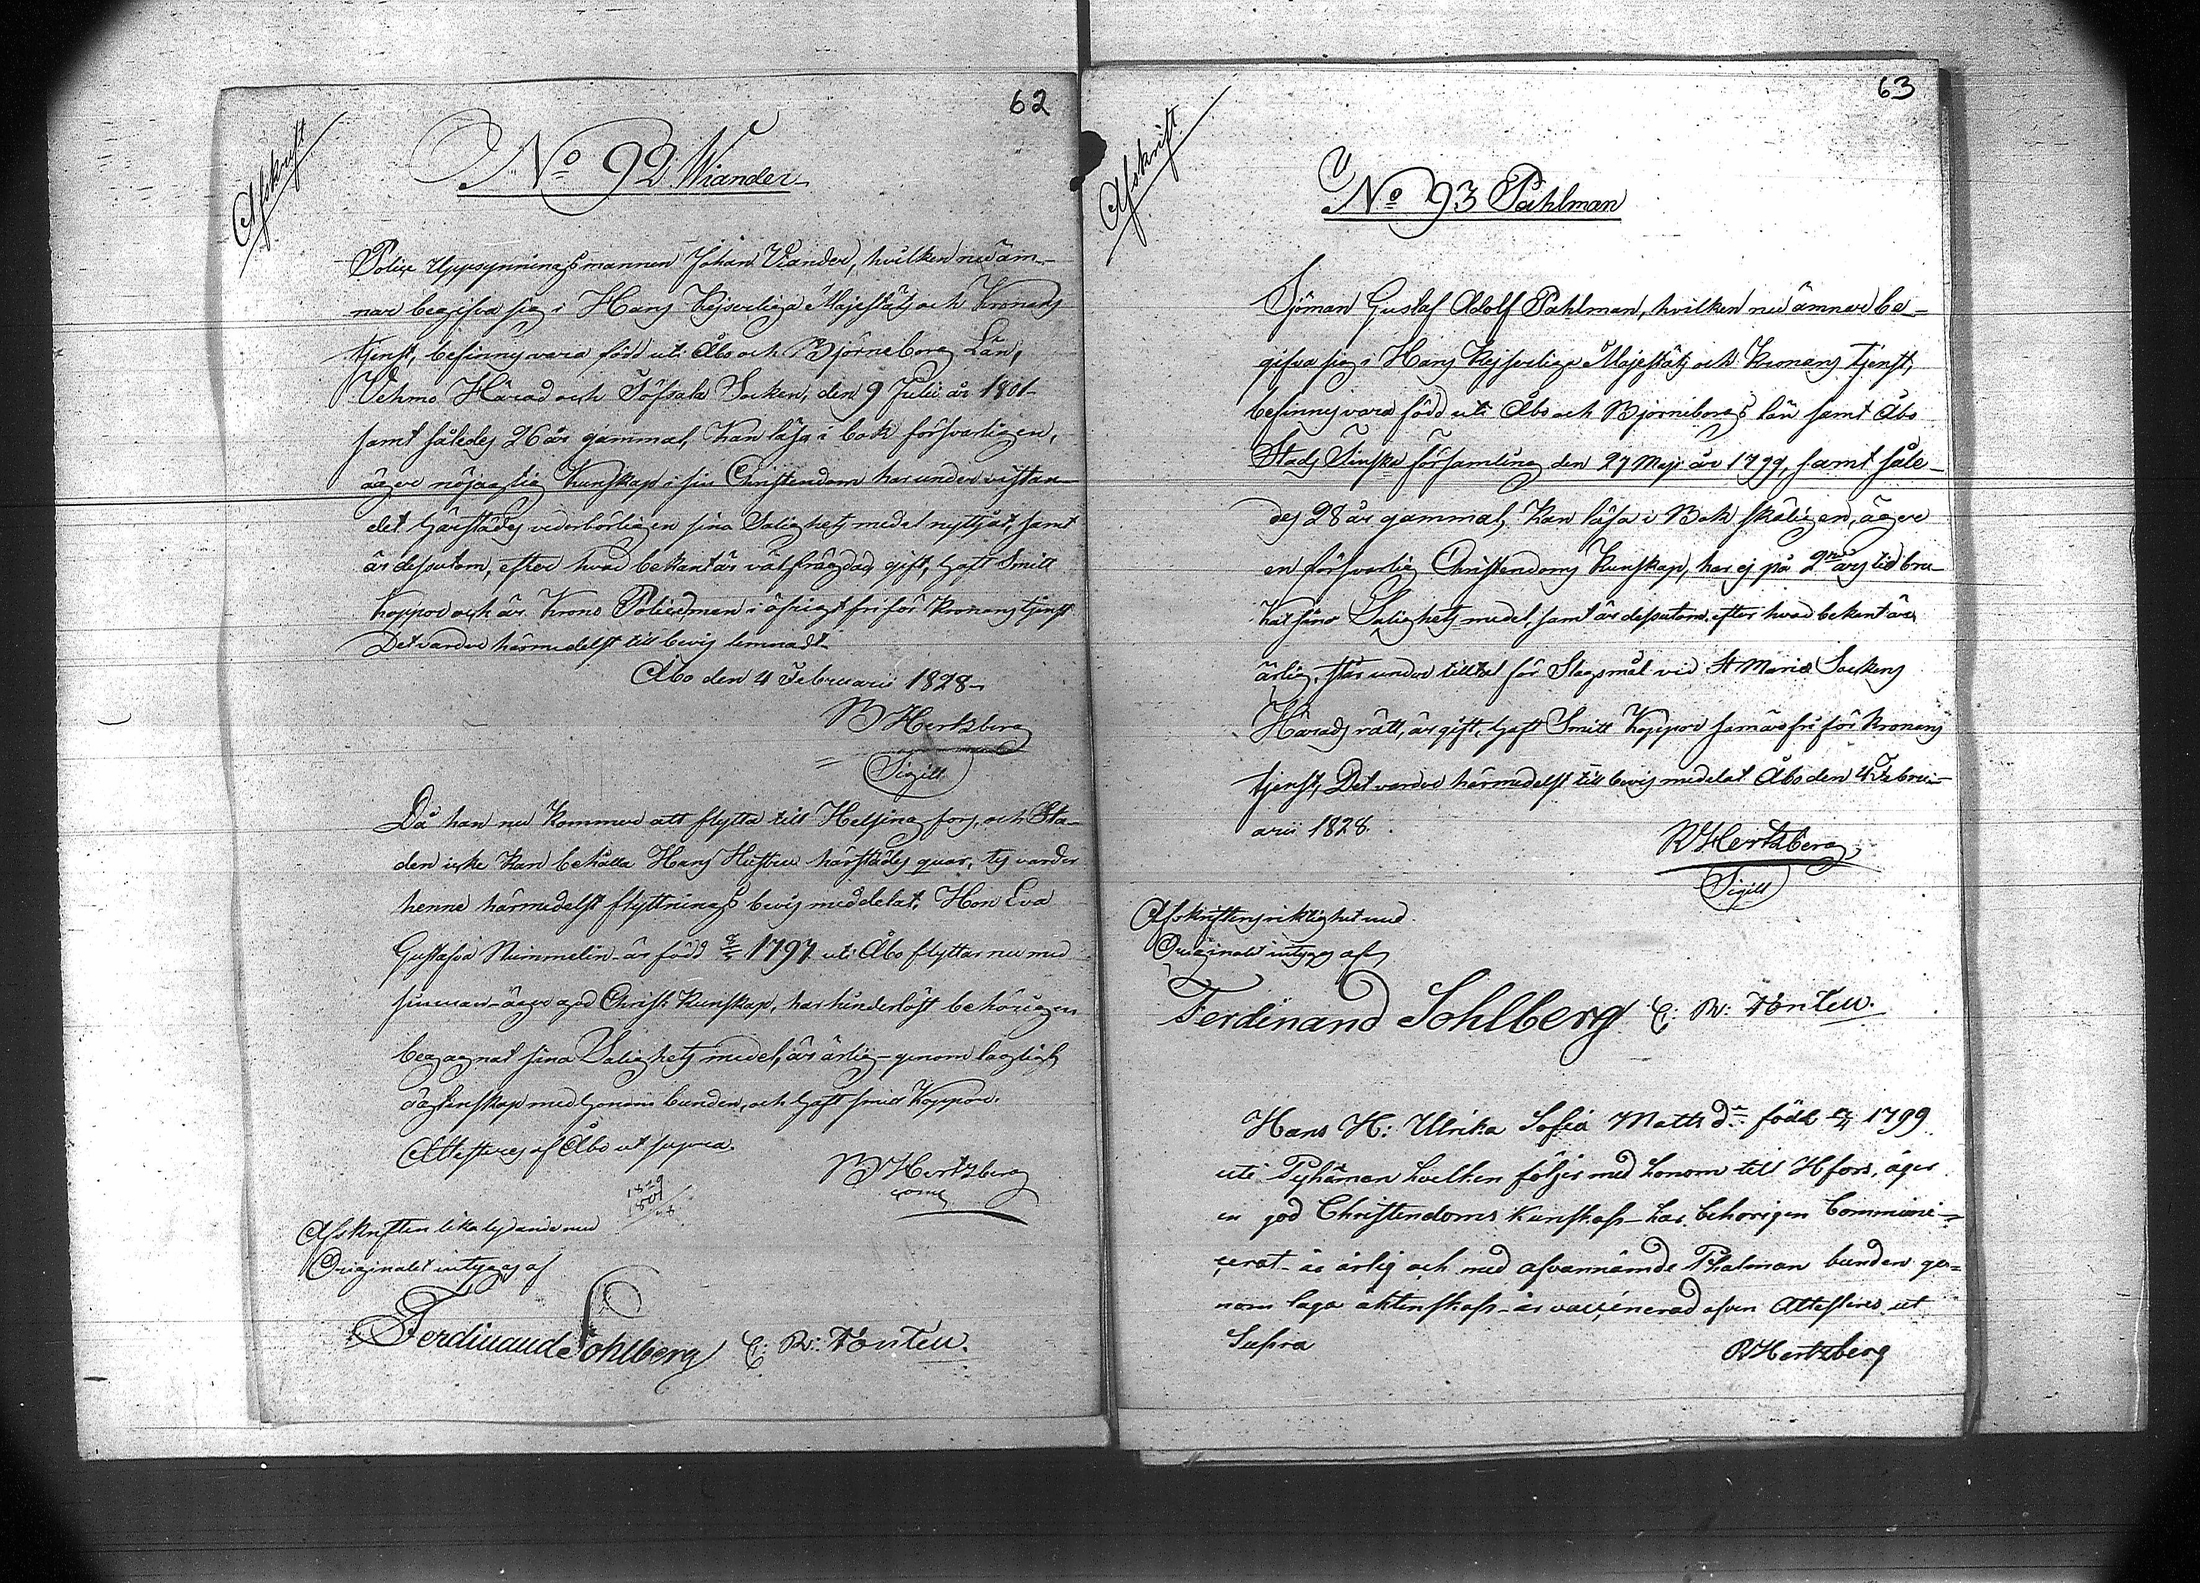 62
Afskrift
No 92 Wiander
Police Uppsynningsmannen Johan Viander, hvilken nu äm-
nar begifva sig i Hans Kejserliga Majestäts och Kronans
tjenst, befinnes vara född uti Åbo och Björneborgs Län,
Vehmo Härad och Töfsala Socken, den 9 Julii år 1801
samt således 26 år gammal, kan läsa i bok försvarligen,
äger nöjagtig kunskap i sin Christendom har under vistan-
det härstädes vederbörligen sina Salighets medel nyttjat, samt
är dessutom, efter hvad bekant är välfrägdad, gift, haft Smitt
koppor och är Krono Policeman i öfrigt fri för Kronans tjenst
Det varder härmedelst till bevis lemnadt.
Åbo den 4 Februarii 1828
B Hertzberg
Sigill
Då han nu kommer att flytta till Helsingfors, och Sta-
den icke kan behålla Hans Hustru härstädes quar, ty varder
henne härmedelst flyttnings bevis meddelat. Hon Eva
Gustafva Nummelin är född 1797 uti Åbo flyttar nu med
sin man äger god Christ. Kunskap, har hinderlöst behörigen
begagnat sina Salighets medel, är ärlig genom lagligt
ägtenskap med honom bunden, och haft smitt Koppor.
Attesteres af Åbo ut supra.
B Hertzberg
1829
1801
Afskriften lika lydande med
Originalet intygas af
Ferdinand Sohlberg E: R: Konteu.
63
Afskrift
No 93 Pahlman
Sjöman Gustaf Adolf Pahlman, hvilken nu ämnar be-
gifva sig i Hans Kejserliga Majestäts och Kronans tjenst,
befinnes vara född uti Åbo och Björneborgs län samt Åbo
Stads Finska församling den 27 Maji år 1799, samt såle-
des 28 år gammal, kan läsa i Bok skäligen, äger
en försvarlig Christendoms Kunskap, har ej på 2ne års tid bru-
kat sina Salighets medel, samt är dessutom, efter hvad bekant är
ärlig, står under tilltal för Slagsmål vid St Mariæ Sockens
Härads rätt, är gift, haft Smitt Koppor samt är fri för Kronans
tjenst, Det varder härmedelst till bevis medelat Åbo den 4 Febru-
arii 1828.
B Hertzberg
Sigill
Afskriftens riktighet med
Originalet intygas af
Ferdinand Sohlberg E: R: Konteu.
Hans H: Ulrika Sofia Matts dr född 1799
uti Pyhämaa hvilken följer med honom till Hfors, äger
en god Christendoms Kunskap har behörigen Communi-
cerat är ärlig och med ofvannämde Phalman bunden ge-
nom laga äktenskap är vaccinerad ofvan Attesteres ut
Supra
B Hertzberg